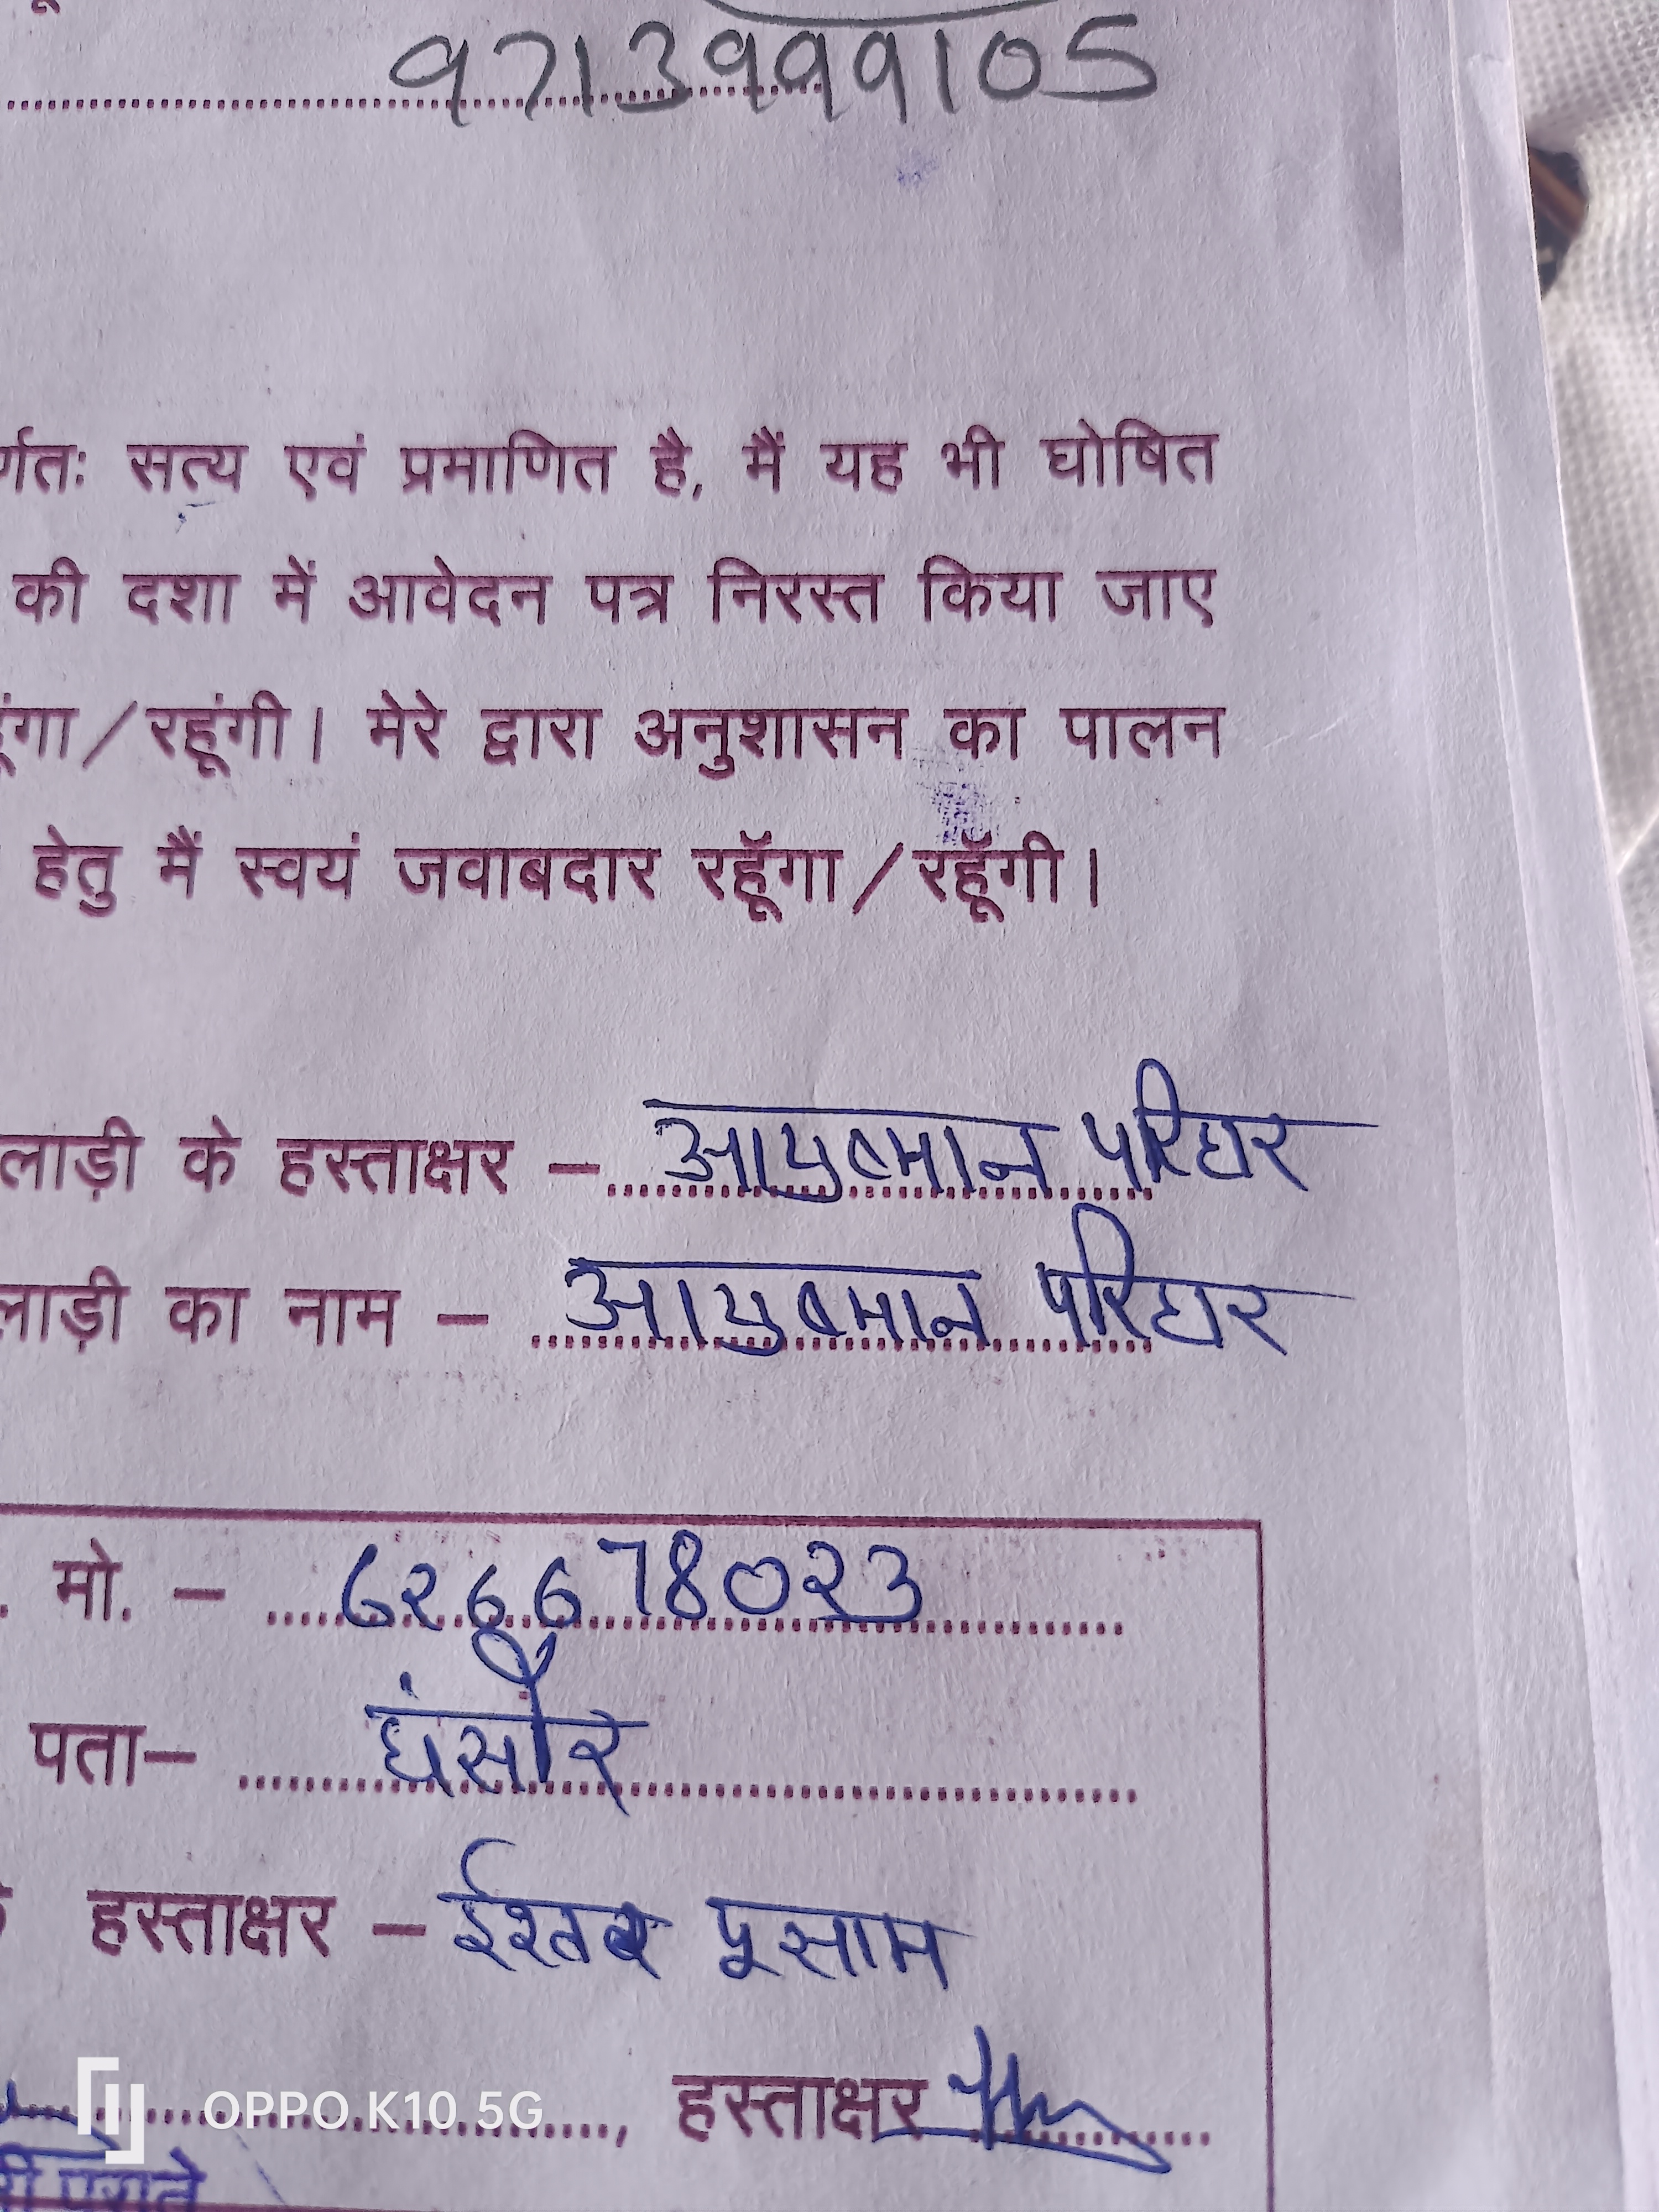 9713999105
र्णतः सत्य एवं प्रमाणित है, मैं यह भी घोषित
की दशा में आवेदन पत्र निरस्त किया जाए
रहूंगी। मेरे द्वारा अनुशासन का पालन
हेतु मैं स्वयं जवाबदार रहूँगा/रहूँगी।
लाड़ी के हस्ताक्षर – आयुष्मान परिहार
लाड़ी का नाम – आयुष्मान परिहार
मो. – 626678023
पता– घंसौर
हस्ताक्षर –
OPPO K10 5G , हस्ताक्षर